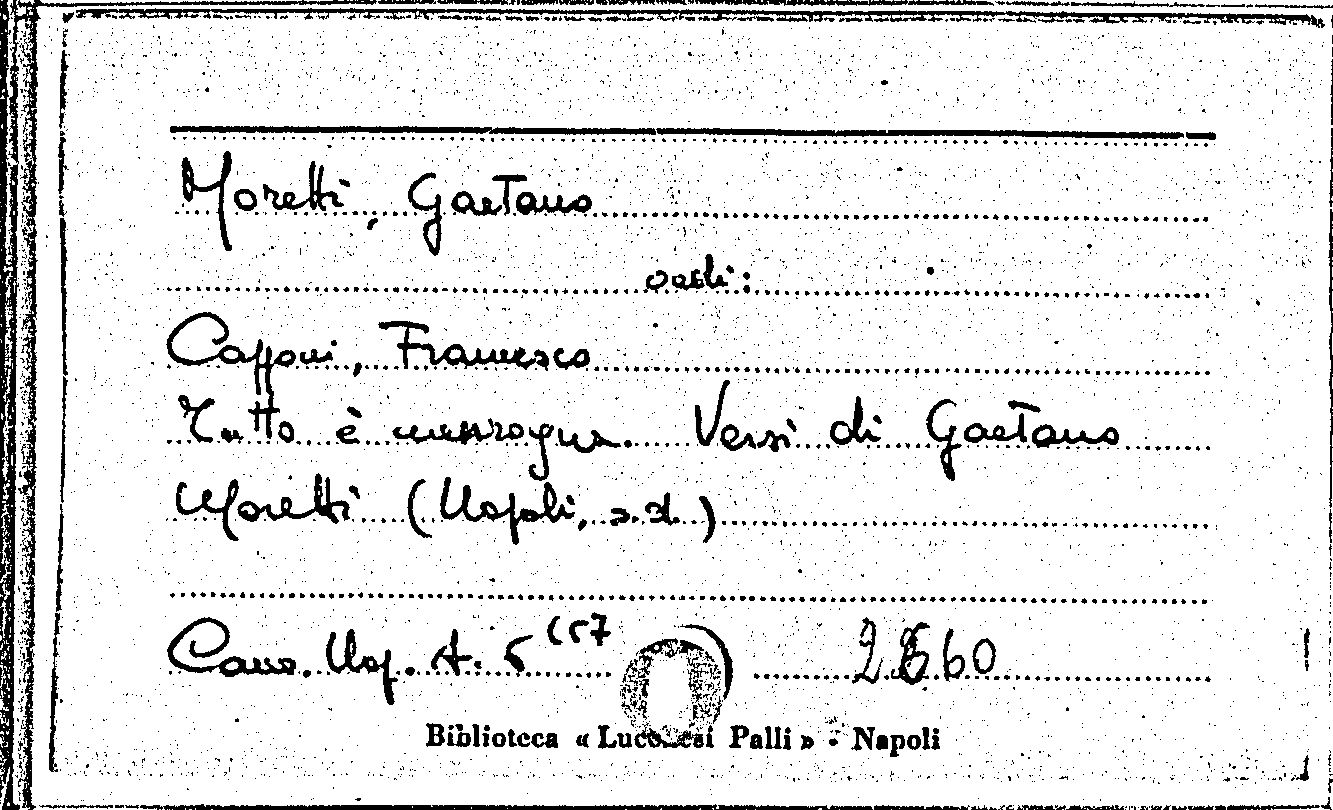 Moretti, Gaetano
vedi:
Capponi, Francesco
Tutto è menzogna. Versi di Gaetano
Moretti (Napoli, s.d.)
Canz. Nap. A. 5 (57 2660
Biblioteca « Lucchesi Palli » - Napoli